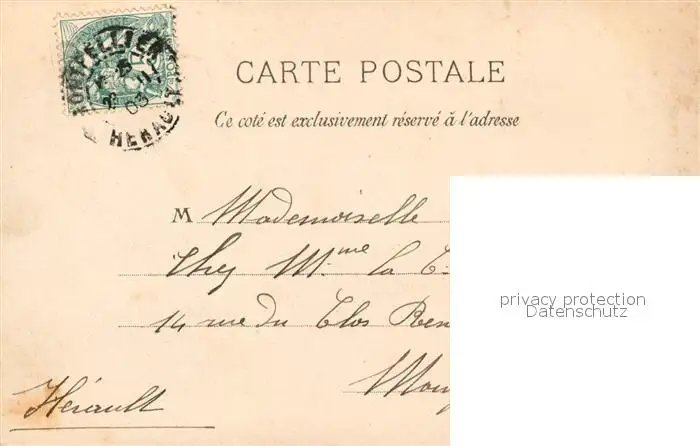 MONTPELLIER
HERAULT
CARTE POSTALE
Ce coté est exclusivement réservé à l'adresse
M Mademoiselle
Chez Mme la
14 rue du Clos
Hérault
privacy protection
Datenschutz